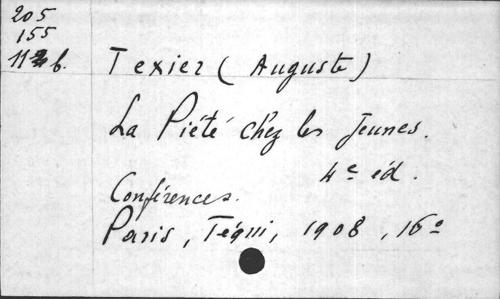 205
155
11 b. Texier (Auguste)
La Piété chez les Jeunes.
4e éd.
Conférences.
Paris, Téqui, 1908, 16°